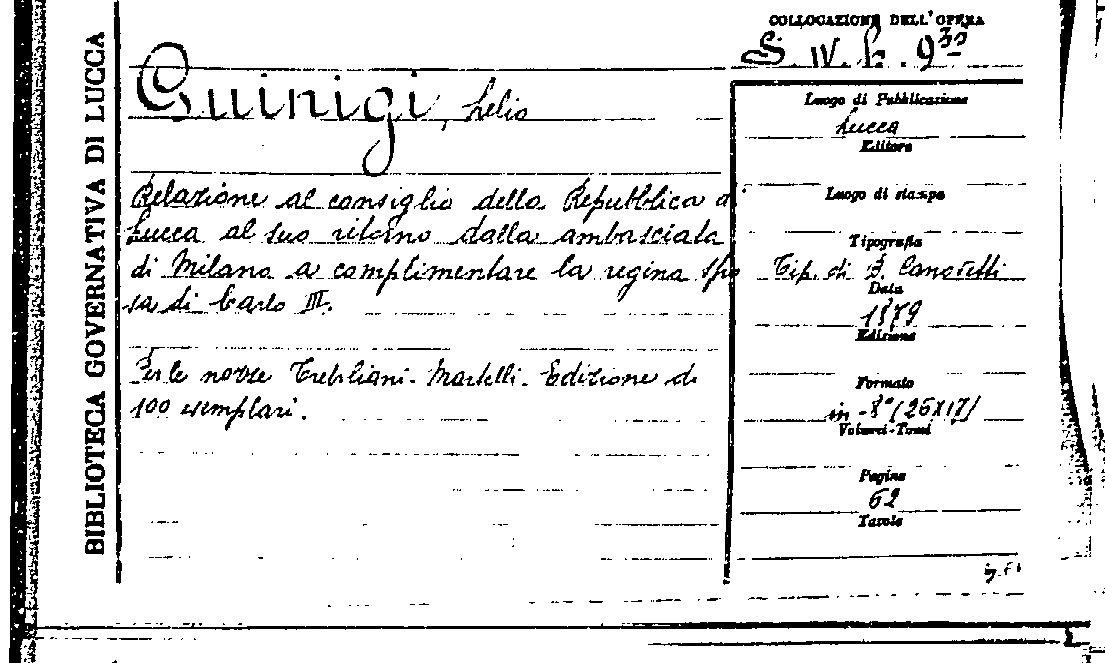 BIBLIOTECA GOVERNATIVA DI LUCCA
COLLOCAZIONE DELL'OPERA
S. IV. h. 9
Guinigi, Lelio
Relazione al consiglio della Repubblica di
Lucca al suo ritorno dalla ambasciata
di Milano a complimentare la regina spo
sa di Carlo III.
Per le nozze Trebiliani-Martelli. Edizione di
100 esemplari.
Luogo di Pubblicazione
Lucca
Editore
Luogo di stampa
Tipografia
Tip. di B. Canovetti
Data
1879
Edizione
Formato
in-8° (26X17)
Volumi-Tomi
Pagine
62
Tavole